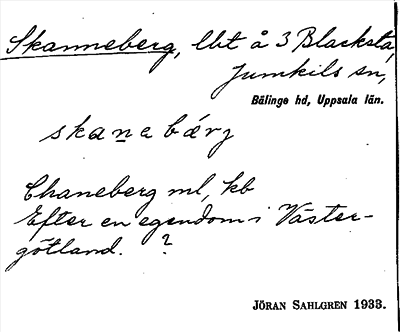 Skanneberg, lht å 3 Blacksta,
Jumkils sn,
Bälinge hd, Uppsala län.
skanabärj
Chaneberg ml, kb
Efter en egendom i Väster-
götland. ?
JÖRAN SAHLGREN 1933.